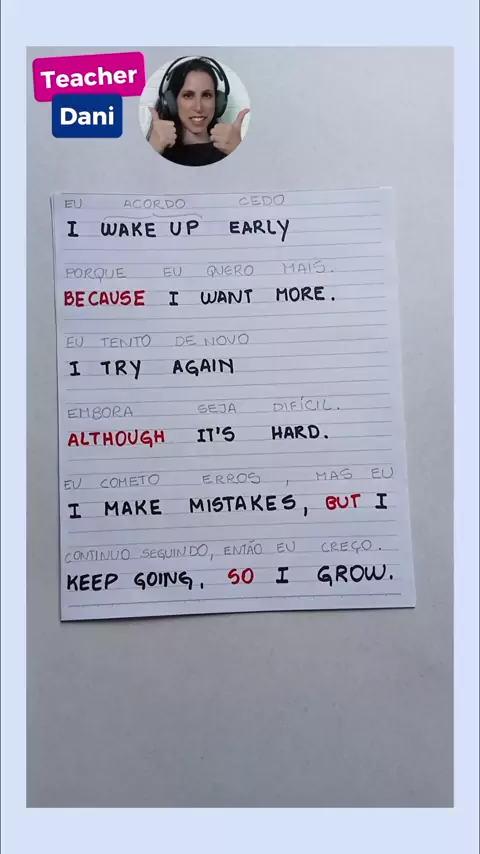 Teacher
Dani
EU ACORDO CEDO
I WAKE UP EARLY
PORQUE EU QUERO MAIS.
BECAUSE I WANT MORE.
EU TENTO DE NOVO
I TRY AGAIN
EMBORA SEJA DIFÍCIL.
ALTHOUGH IT'S HARD.
EU COMETO ERROS, MAS EU
I MAKE MISTAKES, BUT I
CONTINUO SEGUINDO, ENTÃO EU CREÇO.
KEEP GOING, SO I GROW.